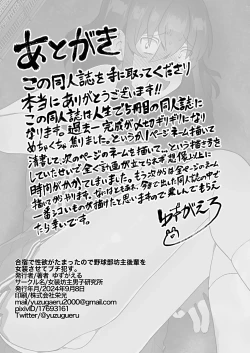 あとがき
この同人誌を手に取ってくださり
本当にありがとうございます!!
この同人誌は人生で5冊目の同人誌に
なります。過去一完成が〆切ギリギリになり
めちゃくちゃ焦りました。というか1ページネーム描いて
清書して、次のページのネーム描いて…という描き方を
していたせいで全く計画が立てられず想像以上に
時間がかかってしまいました。もう次からは全ページネーム
描いてからやります。
一番シコいものが描けたと思いますので楽しんでもらえ
たら幸いです。
ゆずがえろ
合宿で性欲がたまったので野球部坊主後輩を
女装させてブチ犯す。
発行者/著者 ゆずがえる
サークル名/女装坊主男子研究所
発行年月/2024年9月8日
印刷/株式会社栄光
mail/yuzugaeru2000@gmail.com
pixivID/17693161
Twitter/@yuzugueru